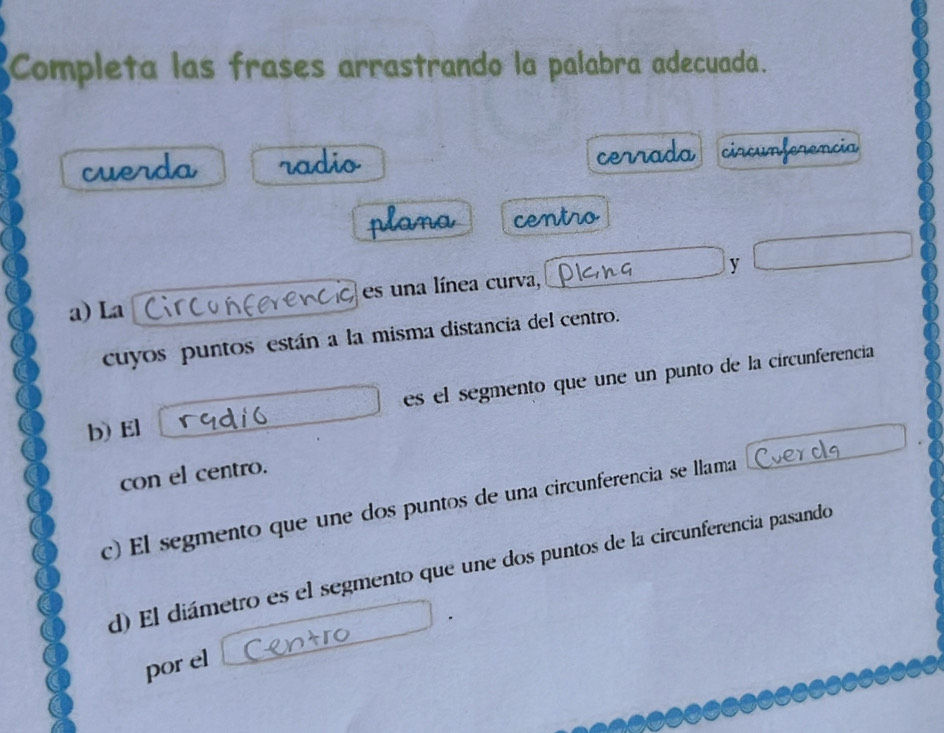 Completa las frases arrastrando la palabra adecuada.
cuerda radio cerrada circunferencia
plana centro
a) La Circunferencia es una línea curva, plana y
cuyos puntos están a la misma distancia del centro.
b) El radio es el segmento que une un punto de la circunferencia
con el centro.
c) El segmento que une dos puntos de una circunferencia se llama Cuerda .
d) El diámetro es el segmento que une dos puntos de la circunferencia pasando
por el Centro .